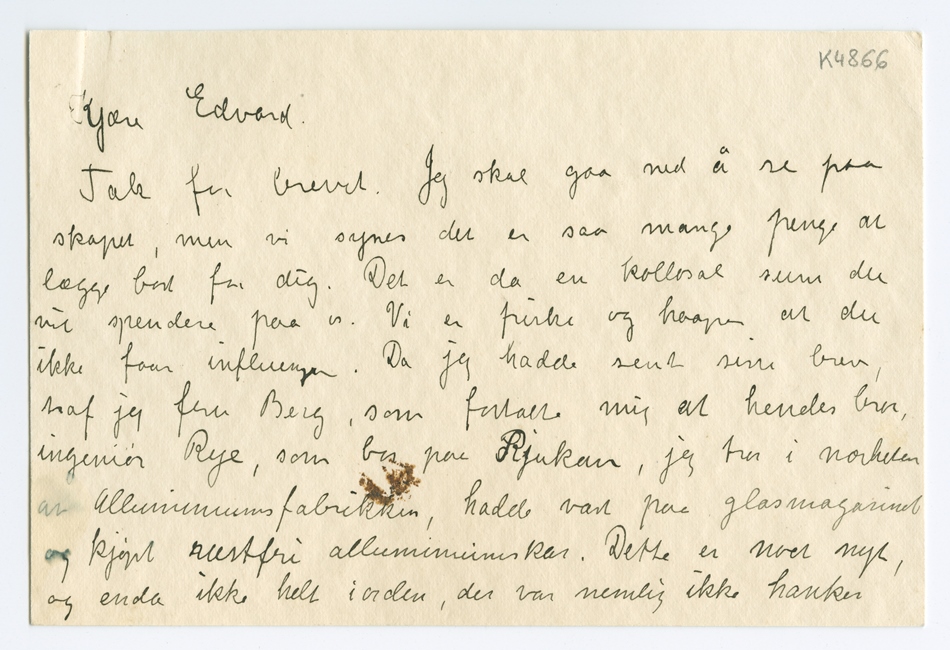 K4866
Kjære Edvard.
Takk for brevet. Jeg skal gaa ned å se paa
skapet, men vi synes det er saa mange penge at
lægge bort for dig. Det er da en kollosal sum du
vil spendere paa os. Vi er friske og haaper at du
ikke faar influenzan. Da jeg hadde sent sine brev,
traf jeg fru Berg, som fortalte mig at hendes bror,
ingeniør Rye, som bor paa Rjukan, jeg tror i nærheten
av Alluminiumsfabrikken, hadde vært paa glasmagasinet
og kjøpt rustfri alluminiumskar. Dette er noet nyt,
og enda ikke helt iorden, der var nemlig ikke hanker